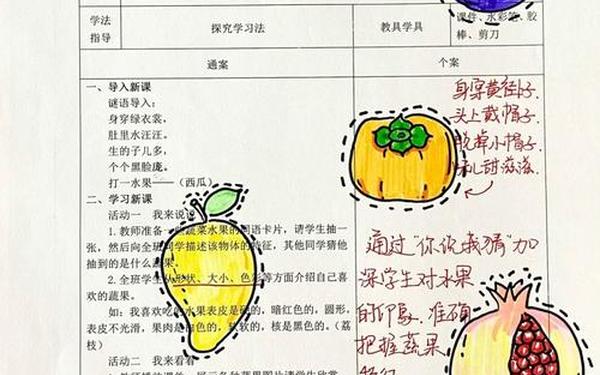 学法
指导
探究学习法
教具学具
课件、水彩笔、胶
棒、剪刀
通案
个案
一、导入新课
谜语导入:
身穿绿衣裳,
肚里水汪汪。
生的子儿多,
个个黑脸庞。
打一水果——(西瓜)
二、学习新课
活动一 我来说说
1.教师准备一些蔬菜水果的词语卡片,请学生抽一
张,然后向全班同学描述该物体的特征,其他同学猜他
抽到的是什么蔬果。
2.全班学生从形状、大小、色彩等方面介绍自己喜
欢的蔬果。
如:我喜欢吃的水果表皮是硬的,暗红色的,圆形,
表皮不光滑,果肉是白色的,软软的,核是黑色的。(荔
枝)
活动二 我来看看
身穿黄袍子.
头上戴帽子.
脱掉小帽子.
甜滋滋.
通过“你说我猜”加
深学生对水果
的印象.准确
把握蔬果